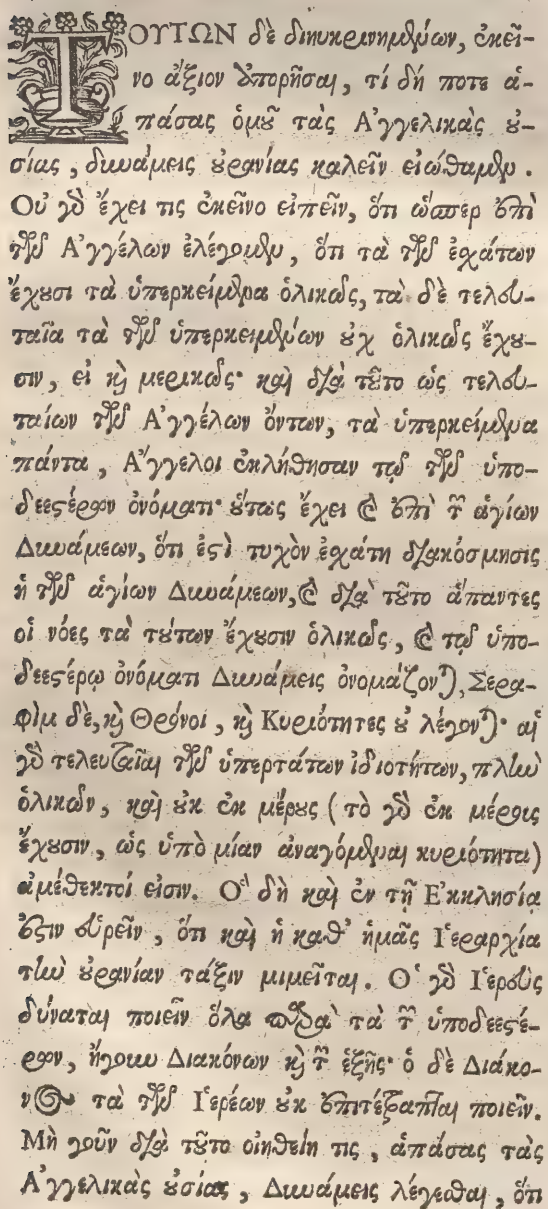 ΤΟΥΤΩΝ δὲ διηυκρινημένων, ἐκεῖ-
νο ἄξιον ἀπορῆσαι, τί δή ποτε ἁ-
πάσας ὁμοῦ τὰς Ἀγγελικὰς οὐ-
σίας, δυνάμεις οὐρανίας καλεῖν εἰώθαμεν.
Οὐ γὰρ ἔχει τις ἐκεῖνο εἰπεῖν, ὅτι ὥσπερ ἐπὶ
τῶν Ἀγγέλων ἐλέγομεν, ὅτι τὰ τῶν ἐσχάτων
ἔχουσι τὰ ὑπερκείμενα ὁλικῶς, τὰ δὲ τελευ-
ταῖα τὰ τῶν ὑπερκειμένων οὐχ ὁλικῶς ἔχου-
σιν, εἰ καὶ μερικῶς· καὶ διὰ τοῦτο ὡς τελευ-
ταίων τῶν Ἀγγέλων ὄντων, τὰ ὑπερκείμενα
πάντα, Ἄγγελοι ἐκλήθησαν τῷ τῶν ὑπο-
δεεστέρων ὀνόματι· οὕτως ἔχει καὶ ἐπὶ τῶν ἁγίων
Δυνάμεων, ὅτι ἐστὶ τυχὸν ἐσχάτη διακόσμησις
ἡ τῶν ἁγίων Δυνάμεων, καὶ διὰ τοῦτο ἅπαντες
οἱ νόες τὰ τούτων ἔχουσιν ὁλικῶς, καὶ τῷ ὑπο-
δεεστέρῳ ὀνόματι Δυνάμεις ὀνομάζονται, Σερα-
φὶμ δὲ, καὶ Θρόνοι, καὶ Κυριότητες οὐ λέγονται· αἱ
γὰρ τελευταῖαι τῶν ὑπερτάτων ἰδιοτήτων, πλὴν
ὁλικῶν, καὶ οὐκ ἐκ μέρους (τὸ γὰρ ἐκ μέρους
ἔχουσιν, ὡς ὑπὸ μίαν ἀναγόμεναι κυριότητα)
ἀμέθεκτοί εἰσιν. Ὃ δὴ καὶ ἐν τῇ Ἐκκλησίᾳ
ἔστιν εὑρεῖν, ὅτι καὶ ἡ καθ' ἡμᾶς Ἱεραρχία
τὴν οὐρανίαν τάξιν μιμεῖται. Ὁ γὰρ Ἱερεὺς
δύναται ποιεῖν ὅλα παρὰ τὰ τῶν ὑποδεεστέ-
ρων, ἤγουν Διακόνων καὶ τῶν ἑξῆς· ὁ δὲ Διάκο-
νος τὰ τῶν Ἱερέων οὐκ ἐπιτέτραπται ποιεῖν.
Μὴ γοῦν διὰ τοῦτο οἰηθείη τις, ἁπάσας τὰς
Ἀγγελικὰς οὐσίας, Δυνάμεις λέγεσθαι, ὅτι